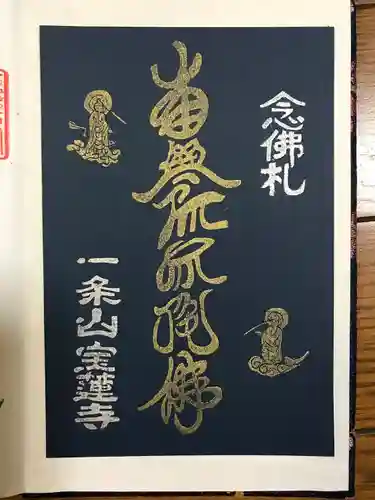 念佛札
南無阿弥陀佛
一条山宝蓮寺